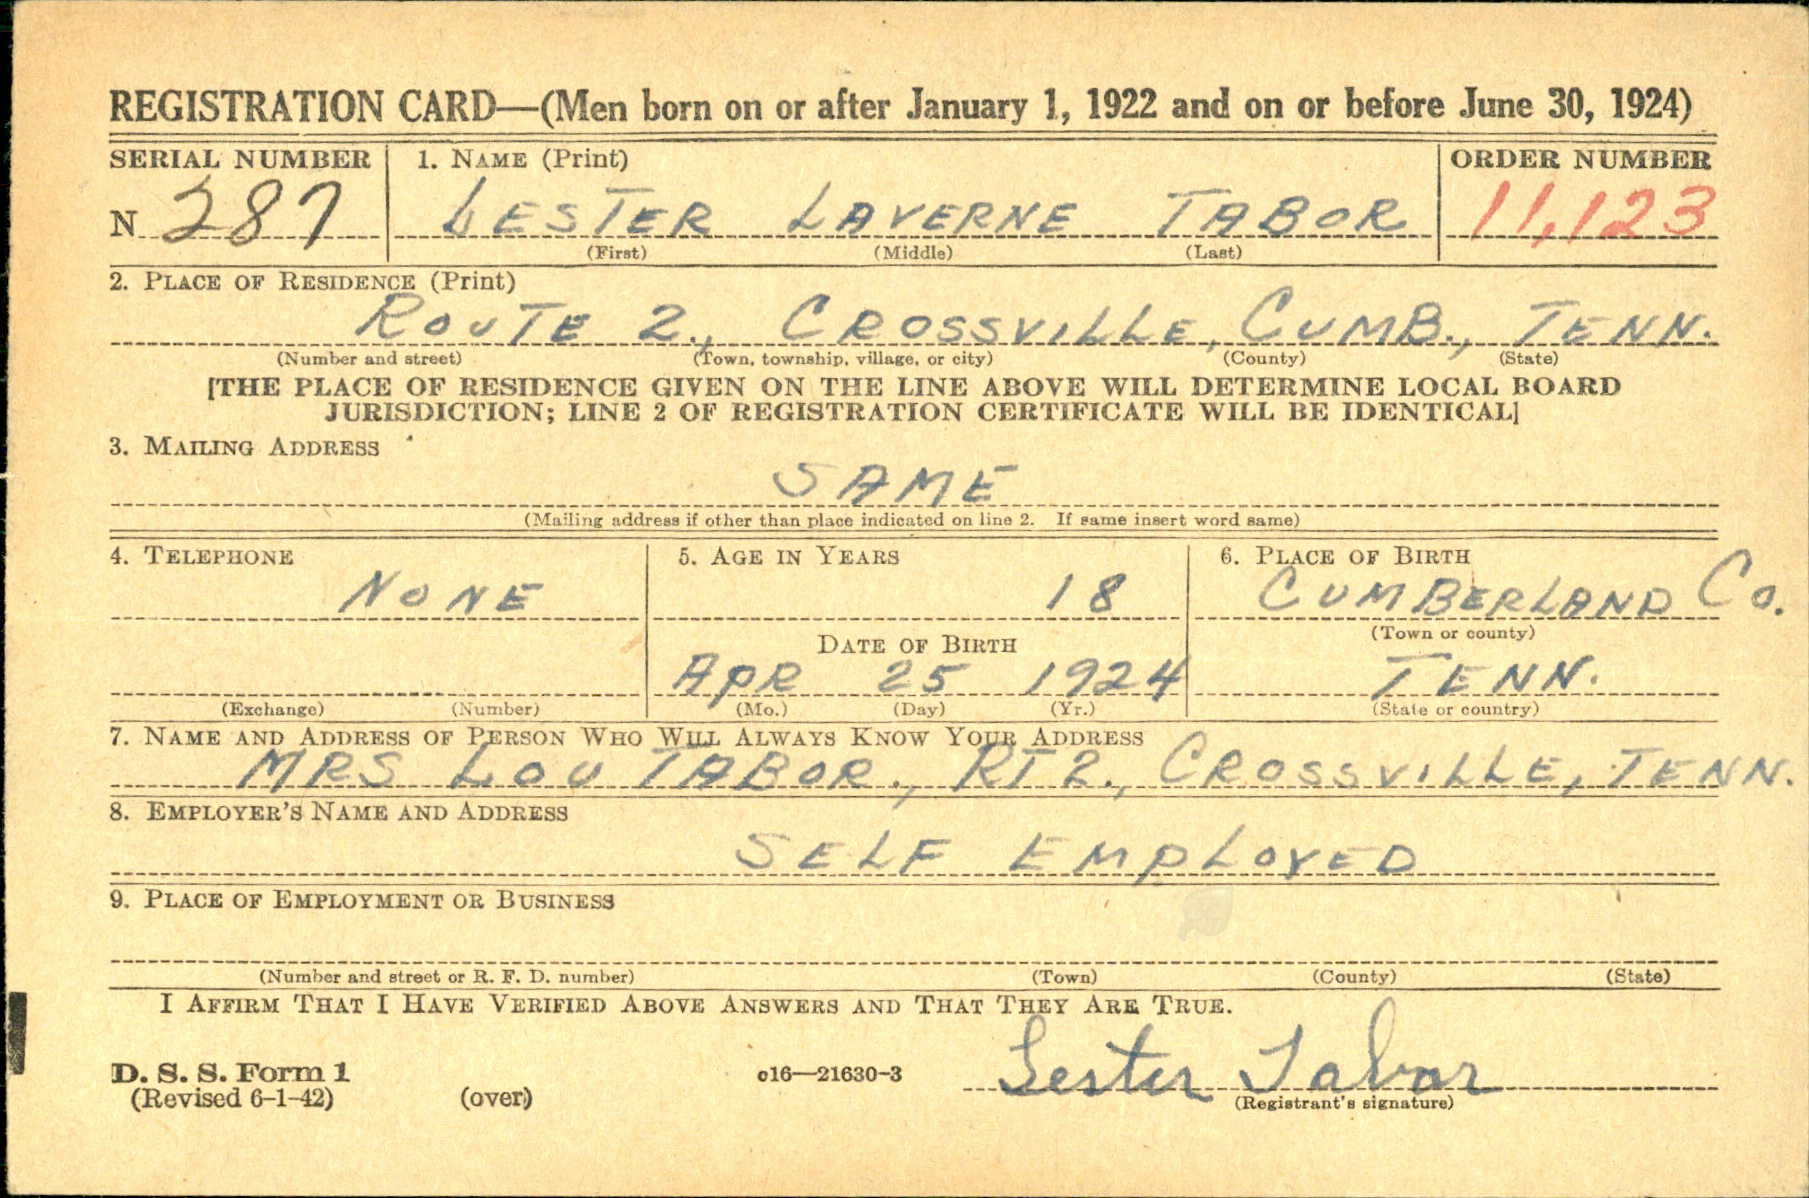 REGISTRATION CARD—(Men born on or after January 1, 1922 and on or before June 30, 1924)
SERIAL NUMBER 1. NAME (Print) ORDER NUMBER
N 287 LESTER LAVERNE TABOR 11,123
(First) (Middle) (Last)
2. PLACE OF RESIDENCE (Print)
ROUTE 2., CROSSVILLE, CUMB., TENN.
(Number and street) (Town, township, village, or city) (County) (State)
[THE PLACE OF RESIDENCE GIVEN ON THE LINE ABOVE WILL DETERMINE LOCAL BOARD
JURISDICTION; LINE 2 OF REGISTRATION CERTIFICATE WILL BE IDENTICAL]
3. MAILING ADDRESS
SAME
(Mailing address if other than place indicated on line 2. If same insert word same)
4. TELEPHONE 5. AGE IN YEARS 6. PLACE OF BIRTH
NONE 18 CUMBERLAND CO.
DATE OF BIRTH (Town or county)
APR 25 1924 TENN.
(Exchange) (Number) (Mo.) (Day) (Yr.) (State or country)
7. NAME AND ADDRESS OF PERSON WHO WILL ALWAYS KNOW YOUR ADDRESS
MRS LOU TABOR., RT 2., CROSSVILLE, TENN.
8. EMPLOYER'S NAME AND ADDRESS
SELF EMPLOYED
9. PLACE OF EMPLOYMENT OR BUSINESS
(Number and street or R. F. D. number) (Town) (County) (State)
I AFFIRM THAT I HAVE VERIFIED ABOVE ANSWERS AND THAT THEY ARE TRUE.
D. S. S. Form 1 c16—21630-3 Lester Tabor
(Revised 6-1-42) (over) (Registrant's signature)